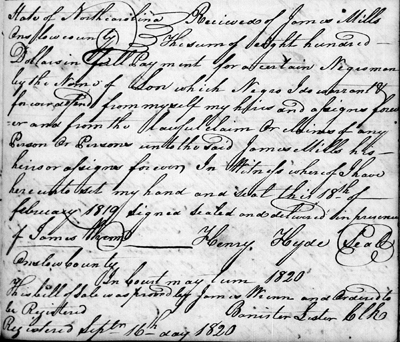 State of Northcarolina } Recieved of James Mills
Onslow county } The sum of eight hundred
Dollars in full Payment for a certain Negroman
by the Name of Lon which Negro I do warrant &
forever defend from myself my heirs and assigns forev
er and from the lawful claim or claims of any
Person or Persons unto the said James Mills his
heirs or assigns forever In Witness whereof I have
hereunto set my hand and seal this 18th of
february 1819 signed sealed and delivered in presence
of James Henry Hyde Seal
Onslow County
In Court may term 1820
This bill of sale was proved by James and Ordered to
be Registered Banister Lister Clk
Registered Septr 16th day 1820